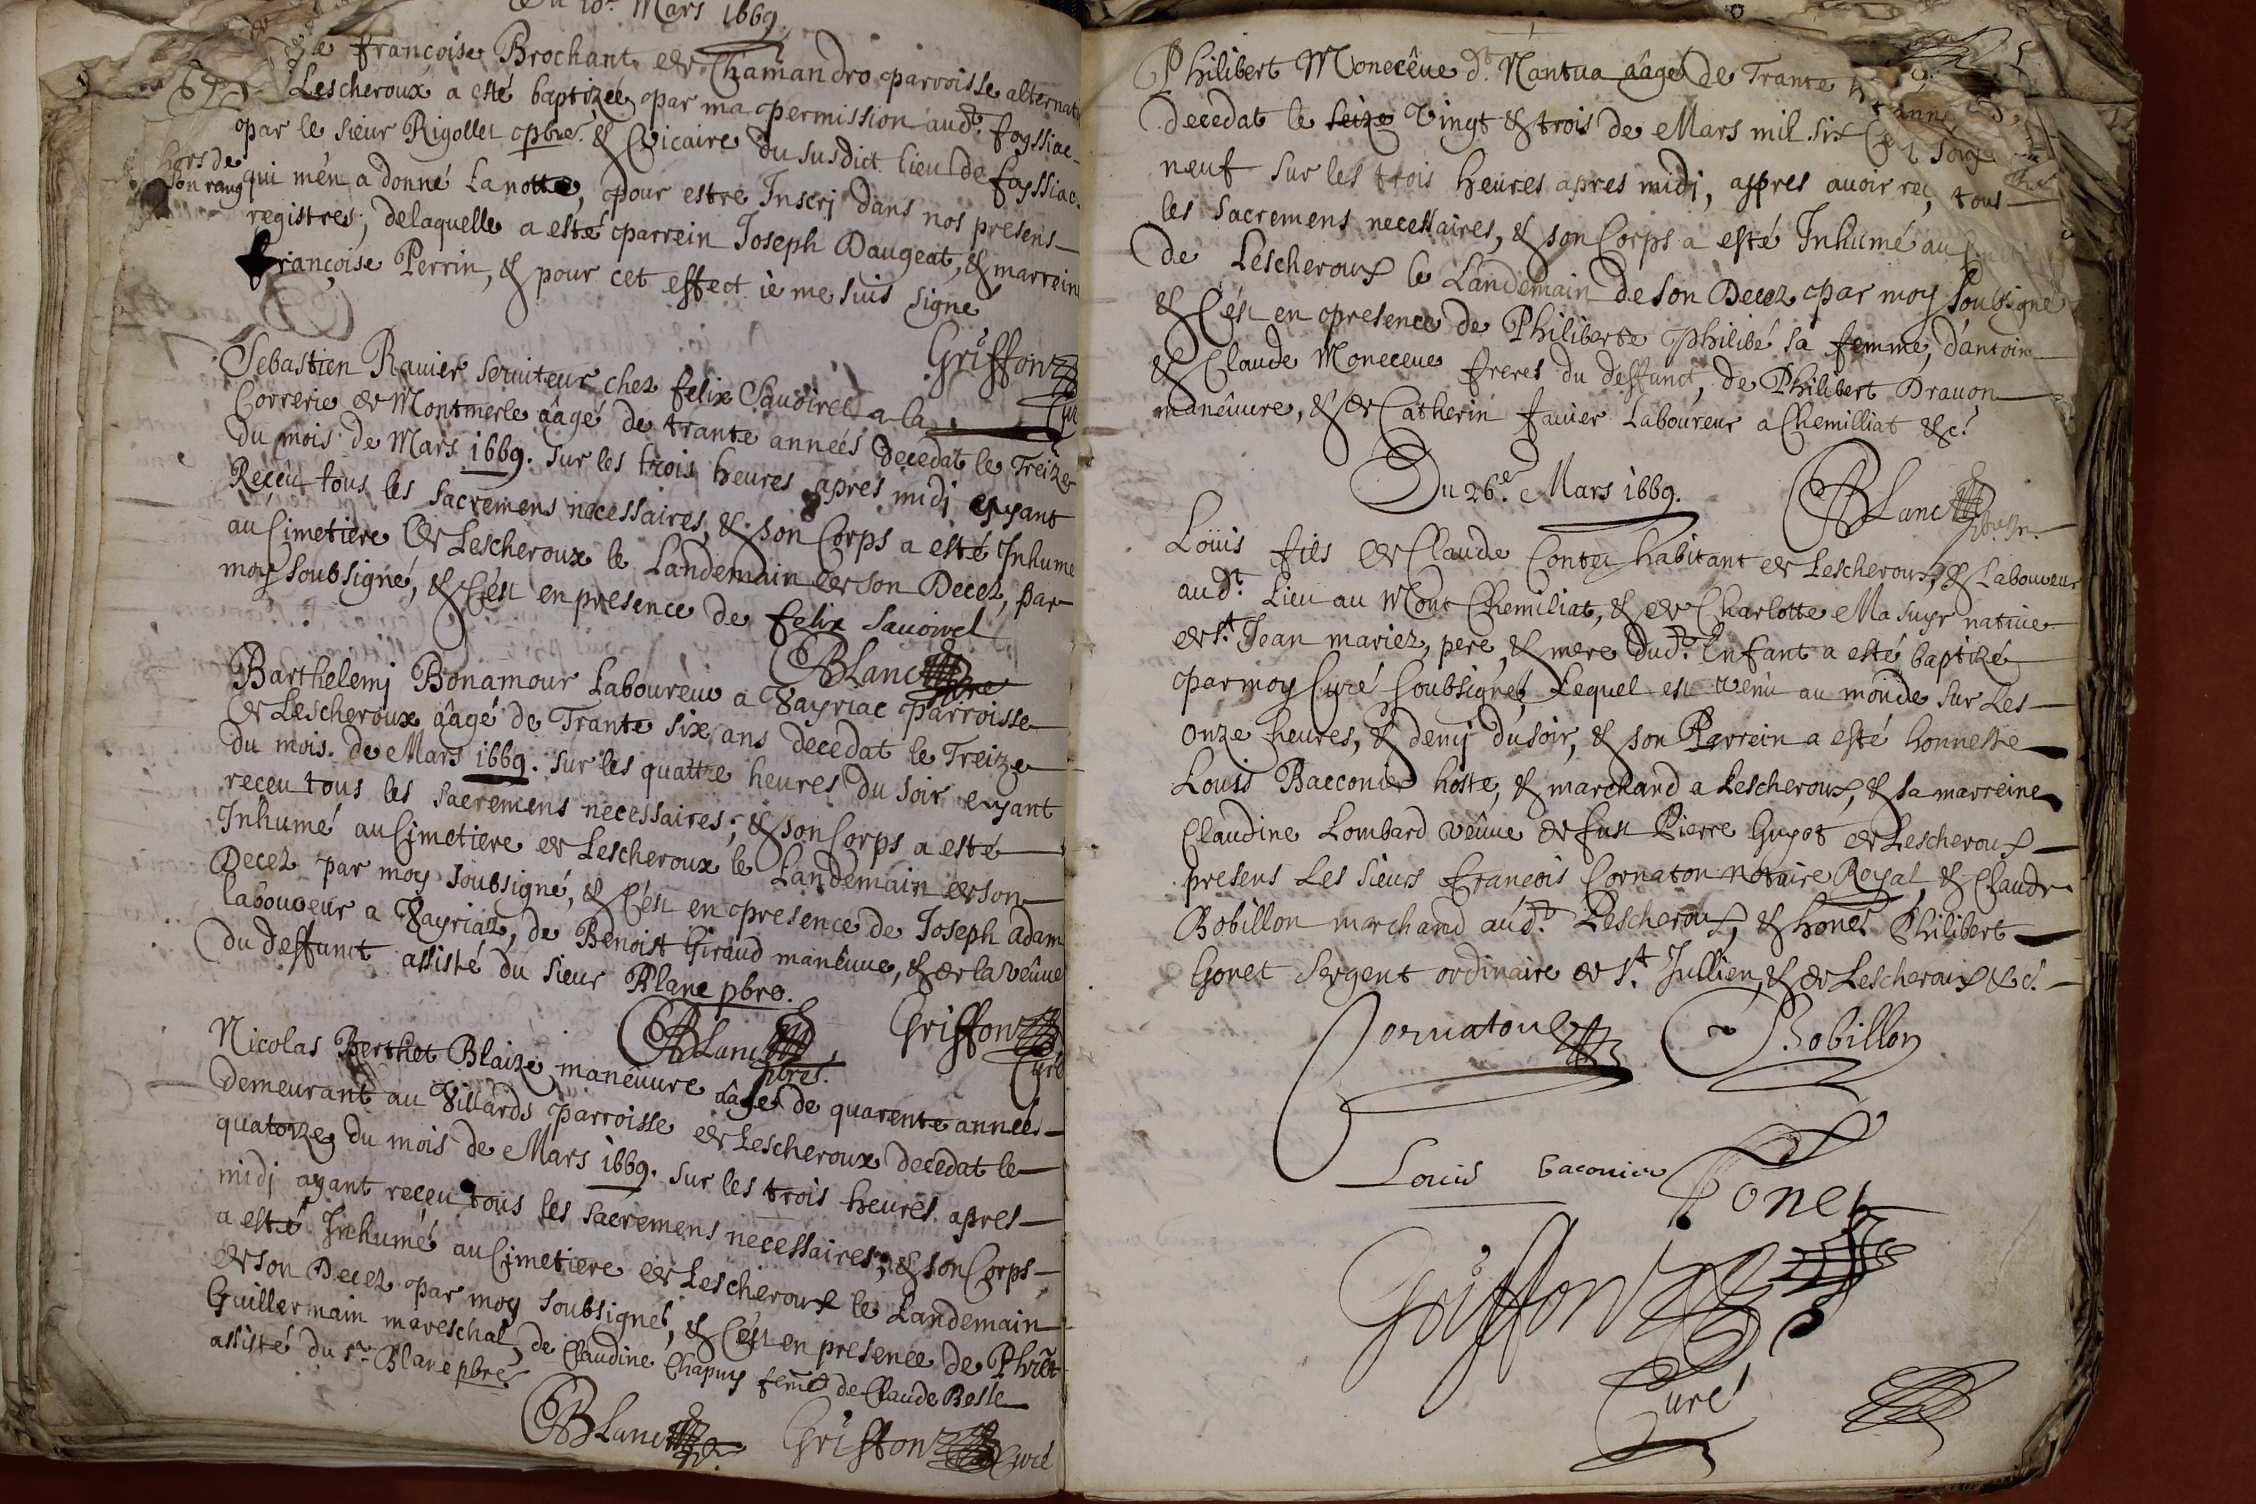 Du 10e. Mars 1669.
françoise Brochant de Chamandro parroisse alternat
Lescheroux a esté baptizée par ma permission aud.t foyssiac
par le sieur Rigollet pbre. & Vicaire du susdict lieu de fayssiac.
hors de
son rang
qui m'en a donné la notte, pour estre Inscrj dans nos presens
registres, delaquelle a esté parrein Joseph Daugeat, & marreine
françoise Perrin, & pour cet effect ie me suis signé
Griffon
Curé
Sebastien Ravier serviteur chez felix Sauoirel a la
Correrie de Montmerle âagé de trante années decedat le Treize
du mois de Mars 1669. sur les trois heures apres midj eyant
Reçeu tous les sacremens necessaires, & son Corps a esté Inhume
au Cimetiere de Lescheroux le Landemain de son Decez, par
moy soubsigné, & c'est en presence de felix Sauoirel
Blanc pbre
Barthelemj Bonamour Laboureur a Vayriac parroisse
de Lescheroux âagé de Trante six ans decedat le Treize
du mois de Mars 1669. sur les quattre heures du soir eyant
reçeu tous les sacremens necessaires, & son Corps a esté
Inhumé au Cimetiere de Lescheroux le Landemain de son
Decez par moy soubsigné, & c'est en presence de Joseph Adam
laboureur a Vayriaz, de Benoist Giraud manêuure, & de la vêuue
du deffunct assisté du sieur Blanc pbre.
Blanc pbre. Griffon Curé
Nicolas Berthet Blaize manêuure âagé de quarente années
demeurant au Villards parroisse de Lescheroux decedat le
quatorze du mois de Mars 1669. sur les trois heures apres
midj ayant reçeu tous les sacremens necessaires, & son Corps
a esté Inhumé au Cimetiere de Lescheroux le Landemain
de son Decez par moy soubsigné, & c'est en presence de Phi͠lt
Guillermain mareschal, de Claudine Chapuy fem̃e de Claude Besse
assisté du sr. Blanc pbre
Blanc Griffon Curé
Philibert Monecêue d.t Nantua âagé de Trante
decedat le seize Vingt & trois de Mars mil six
neuf sur les trois heures apres midj, appres auoir reç, tous
les sacremens necessaires, & son Corps a esté Inhumé au
de Lescheroux le Landemain de son Decez par moy soubsigné
& c'est en presence de Philiberte philibé sa femme, d'antoine
& Claude Moneceue freres du deffunct, de Philibert Drauon
manêuure, & de Catherin fauier Laboureur a Chemilliat &c.
Blanc
Du 26e. Mars 1669.
Loüis fils de Claude Contet habitant de Lescheroux, & Laboureur
aud.t Lieu au Mont Chemiliat, & de Charlotte Masuyr natiue
de s.t Jean mariez, pere, & mere dud.t Enfant a esté baptizé
par moy Curé soubsigné, Lequel est venu au monde sur Les
onze heures, & demj du soir, & son Parrein a esté honneste
Louis Bacconier hoste, & marchand a Lescheroux, & sa marreine
Claudine Lombard vêuue de fust Pierre Guyot de Lescheroux
presens Les sieurs francois Cornaton notaire Royal, & Claude
Bobillon marchand aud.t Lescheroux, & honet Philibert
Gonet sergent ordinaire de s.t Jullien, & de Lescheroux &c.
Cornaton Bobillon
Louis baconier Gonet
Griffon
Curé